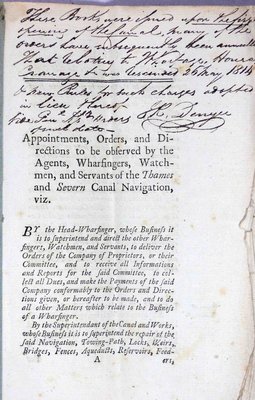 These Books were issued upon the first
opening of the Canal, many of the
orders have subsequently been annulled
That relating to Wharfage, House
Cranage &c was rescinded 26 May 1814
& new Rules for such charges adopted
in lieu thereof
vide Gen.l Orders
such date
Appointments, Orders, and Di-
rections to be observed by the
Agents, Wharfingers, Watch-
men, and Servants of the Thames
and Severn Canal Navigation,
viz.
BY the Head-Wharfinger, whose Business it
is to superintend and direct the other Whar-
fingers, Watchmen, and Servants, to deliver the
Orders of the Company of Proprietors, or their
Committee, and to receive all Informations
and Reports for the said Committee, to col-
lect all Dues, and make the Payments of the said
Company conformably to the Orders and Direc-
tions given, or hereafter to be made, and to do
all other Matters which relate to the Business
of a Wharfinger.
By the Superintendant of the Canal and Works,
whose Business it is to superintend the repair of the
said Navigation, Towing-Path, Locks, Wears,
Bridges, Fences, Aqueducts, Reservoirs, Feed-
A
ers,